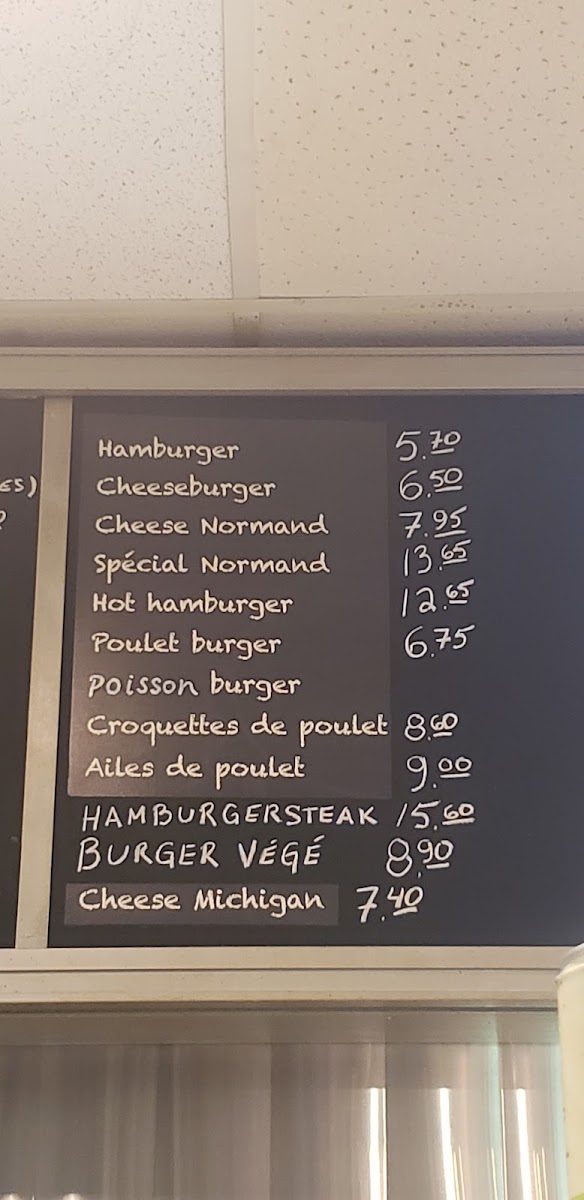 ES)
?
Hamburger 5.70
Cheeseburger 6.50
Cheese Normand 7.95
Spécial Normand 13.65
Hot hamburger 12.65
Poulet burger 6.75
Poisson burger
Croquettes de poulet 8.60
Ailes de poulet 9.00
HAMBURGERSTEAK 15.60
BURGER VÉGÉ 8.90
Cheese Michigan 7.40